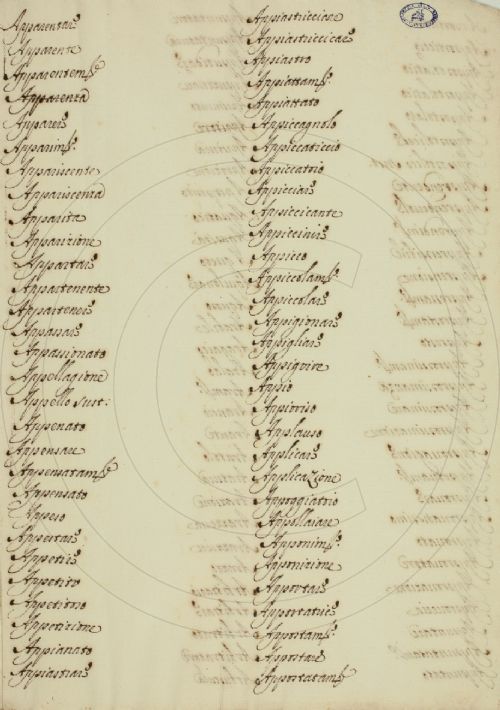 Apparentare
Apparente
Apparentem.te
Apparenza
Apparere
Apparim.to
Appariscente
Appariscenza
Apparita
Apparizione
Appartare
Appartenente
Appartenere
Appassare
Appassionato
Appellagione
Appello sust:
Appenato
Appensare
Appensatam.te
Appensato
Appeso
Appestare
Appetire
Appetito
Appetitoso
Appetizione
Appianato
Appiastrare
Appiastricciare
Appiastriccicare
Appiastro
Appiattam.to
Appiattato
Appiccagnolo
Appiccaticcio
Appicciare
Appiccicante
Appiccinire
Appicco
Appiccolam.to
Appiccolare
Appigionare
Appigliare
Appio
Applauso
Applicare
Applicazione
Appoggiatoio
Appollaiare
Apponim.to
Apponizione
Apportare
Apportatore
Appostam.to
Appostare
Appostatam.te